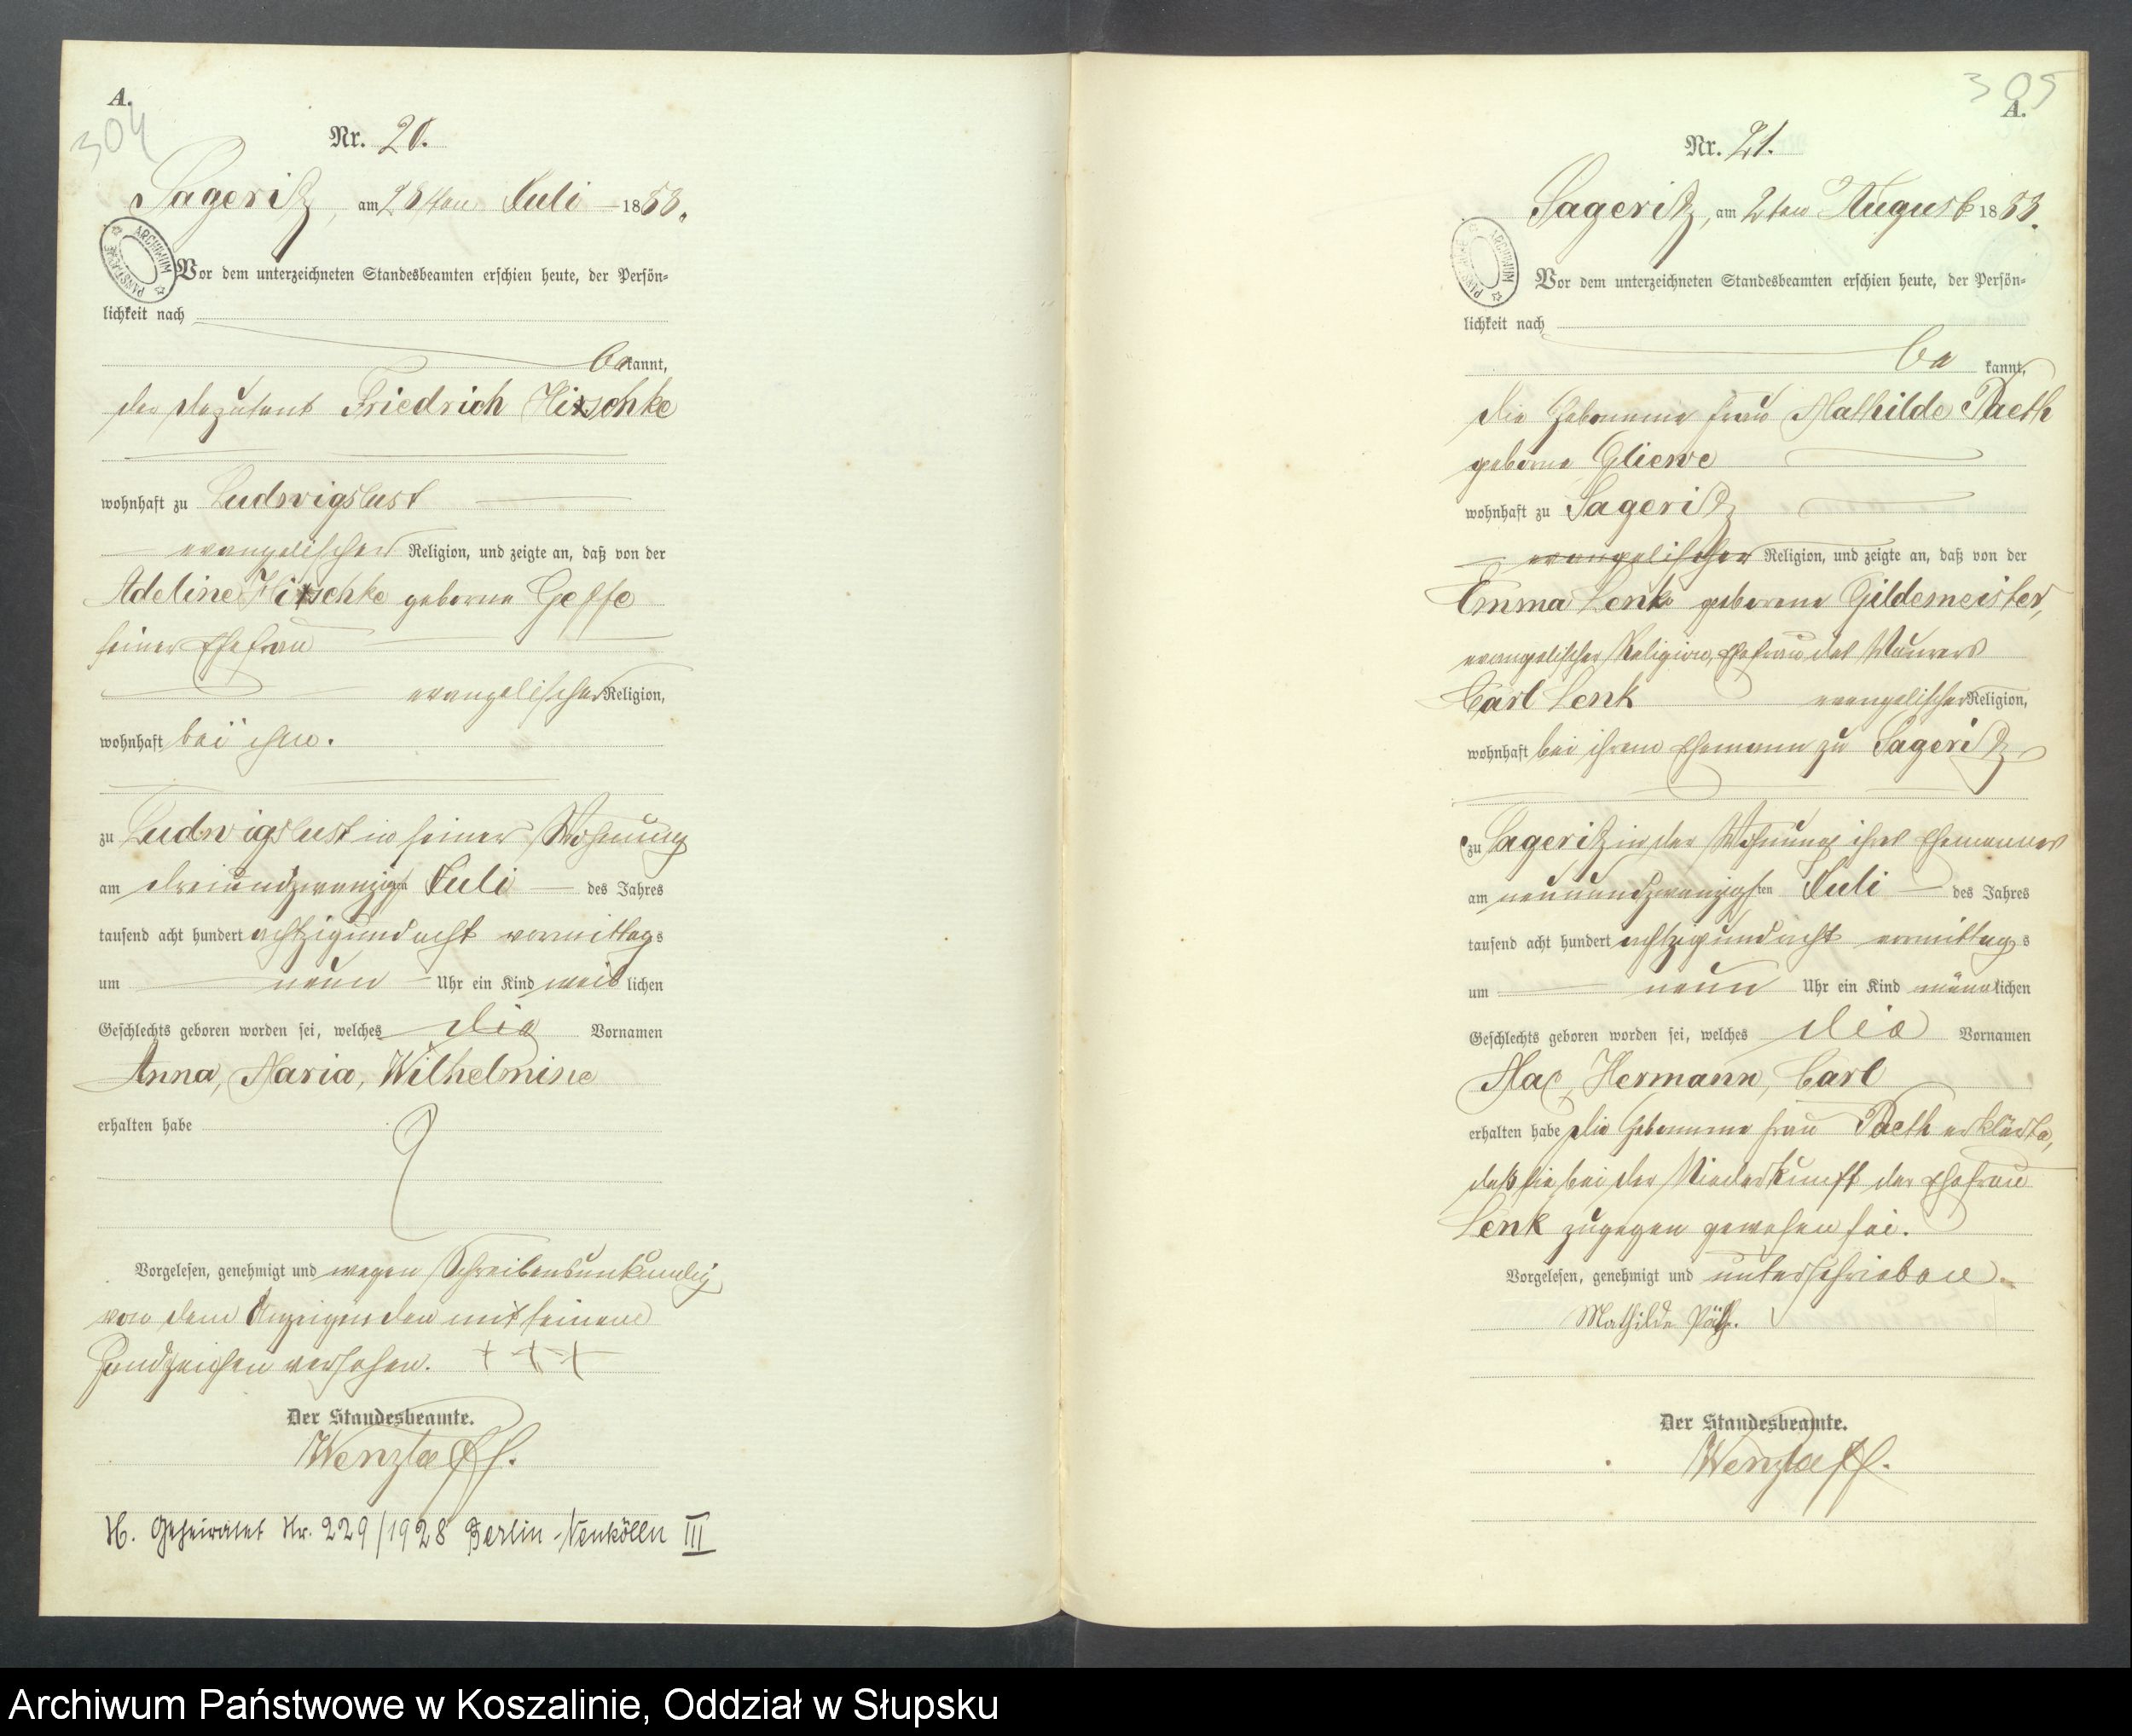 A.
304
Nr. 20.
Sageritz, am 28ten Juli 1888.
ARCHIWUM PAŃSTWOWE
Vor dem unterzeichneten Standesbeamten erschien heute, der Persön=
lichkeit nach
bekannt,
der Deputant Friedrich Hitschke
wohnhaft zu Ludwigslust
evangelischer Religion, und zeigte an, daß von der
Adeline Hitschke geborne Geffe
seiner Ehefrau
evangelischer Religion,
wohnhaft bei ihm.
zu Ludwigslust in seiner Wohnung
am dreiundzwanzigsten Juli des Jahres
tausend acht hundert achtzigundacht vormittags
um neun Uhr ein Kind weiblichen
Geschlechts geboren worden sei, welches die Vornamen
Anna, Maria, Wilhelmine
erhalten habe
Vorgelesen, genehmigt und wegen Schreibensunkundig
von dem Anzeigenden mit seinem
Handzeichen versehen. + + +
Der Standesbeamte.
Wenzlaff.
H. Geheiratet Nr. 229/1928 Berlin-Neukölln III
305
A.
Nr. 21.
Sageritz, am 2ten August 1888.
ARCHIWUM PAŃSTWOWE
Vor dem unterzeichneten Standesbeamten erschien heute, der Persön=
lichkeit nach
bekannt,
die Hebamme Frau Mathilde Paeth
geborne Gliewe
wohnhaft zu Sageritz
evangelischer Religion, und zeigte an, daß von der
Emma Lenk geborene Gildemeister,
evangelischer Religion, Ehefrau des Maurers
Carl Lenk evangelischer Religion,
wohnhaft bei ihrem Ehemann zu Sageritz
zu Sageritz in der Wohnung ihres Ehemannes
am neunundzwanzigsten Juli des Jahres
tausend acht hundert achtzigundacht vormittags
um neun Uhr ein Kind männlichen
Geschlechts geboren worden sei, welches die Vornamen
Max, Hermann, Carl
erhalten habe Die Hebamme Frau Paeth erklärte,
daß sie bei der Niederkunft der Ehefrau
Lenk zugegen gewesen sei.
Vorgelesen, genehmigt und unterschrieben.
Mathilde Päth.
Der Standesbeamte.
Wenzlaff.
Archiwum Państwowe w Koszalinie, Oddział w Słupsku